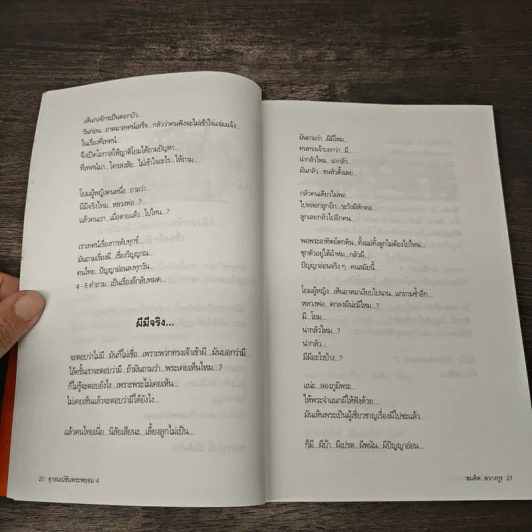 เห็นกงจักรเป็นดอกบัว...
วันก่อน...อาตมาเทศน์เสร็จ...กลัวว่าคนฟังจะไม่เข้าใจแจ่มแจ้ง...
ในเรื่องที่เทศน์...
จึงเปิดโอกาสให้ญาติโยมได้ถามปัญหา...
ที่เทศน์มา...ใครสงสัย...ไม่เข้าใจอะไร...ให้ถาม...
โยมผู้หญิงคนหนึ่ง...ถามว่า...
ผีมีจริงไหม...หลวงพ่อ...?
แล้วคนเรา...เมื่อตายแล้ว...ไปไหน...?
เราเทศน์เรื่องการดับทุกข์...
มันถามเรื่องผี...เรื่องวิญญาณ...
คนไทย...ปัญญาอ่อนลงทุกวัน...
4 - 5 คำถาม...เป็นเรื่องลึกลับหมด...
ผีมีจริง...
จะตอบว่าไม่มี...มันก็ไม่เชื่อ...เพราะพวกทรงเจ้าเข้าผี...มันบอกว่ามี...
ไอ้ครั้นเราจะตอบว่ามี...ถ้ามันถามว่า...พระเคยเห็นไหม...?
ก็ไม่รู้จะตอบยังไง...เพราะพระไม่เคยเห็น...
ไม่เคยเห็นแล้วจะตอบว่ามีได้ยังไง...
แล้วคนไทยเนี่ย...นิสัยเสียนะ...เลี้ยงลูกไม่เป็น...
20 อารมณ์ขันพระพยอม 4
มันถามว่า...ผีมีไหม...
คนทรงเจ้าบอกว่า...มี...
น่ากลัวไหม...น่ากลัว...
มันกลัว...ขนหัวตั้งเลย...
กลัวคนเดียวไม่พอ...
ไปหลอกลูกอีก...ระวังผีหักคอ...
ลูกเลยกลัวไปอีกคน...
พอพระอาทิตย์ตกดิน...ทั้งแม่ทั้งลูกไม่ต้องไปไหน...
ซุกตัวอยู่ใต้ผ้าห่ม...กลัวผี...
ปัญญาอ่อนจริง ๆ...คนสมัยนี้...
โยมผู้หญิง...เห็นอาตมาเงียบไปนาน...แกถามซ้ำอีก...
หลวงพ่อ...ตกลงผีน่ะมีไหม...
มี...โยม...
น่ากลัวไหม...?
น่ากลัว...
มีผีอะไรบ้าง...?
แน่ะ...ลองภูมิพระ...
ให้พระจำแนกผีให้ฟังด้วย...
มันเห็นพระเป็นผู้เชี่ยวชาญเรื่องผีไปซะแล้ว...
ก็มี...ผีบ้า...ผีเปรต...ผีพนัน...ผีปัญญาอ่อน...
สมคิด ลวางกูร 21